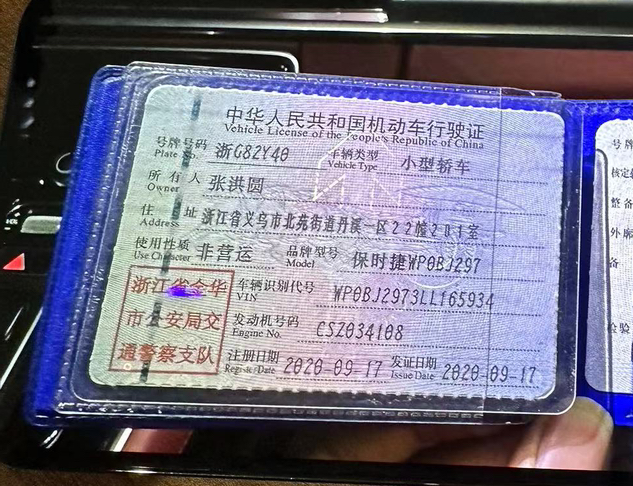 中华人民共和国机动车行驶证
Vehicle License of the People's Republic of China
号牌号码 Plate No. 浙G82Y40 车辆类型 Vehicle Type 小型轿车
所有人 Owner 张洪圆
住址 Address 浙江省义乌市北苑街道丹溪一区22幢201室
使用性质 Use Character 非营运 品牌型号 Model 保时捷WP0BJ297
浙江省金华 车辆识别代号 VIN WP0BJ2973LL165934
市公安局交 发动机号码 Engine No. CSZ034108
通警察支队 注册日期 Register Date 2020-09-17 发证日期 Issue Date 2020-09-17
号牌
核定载
整备
外廓
备
检验